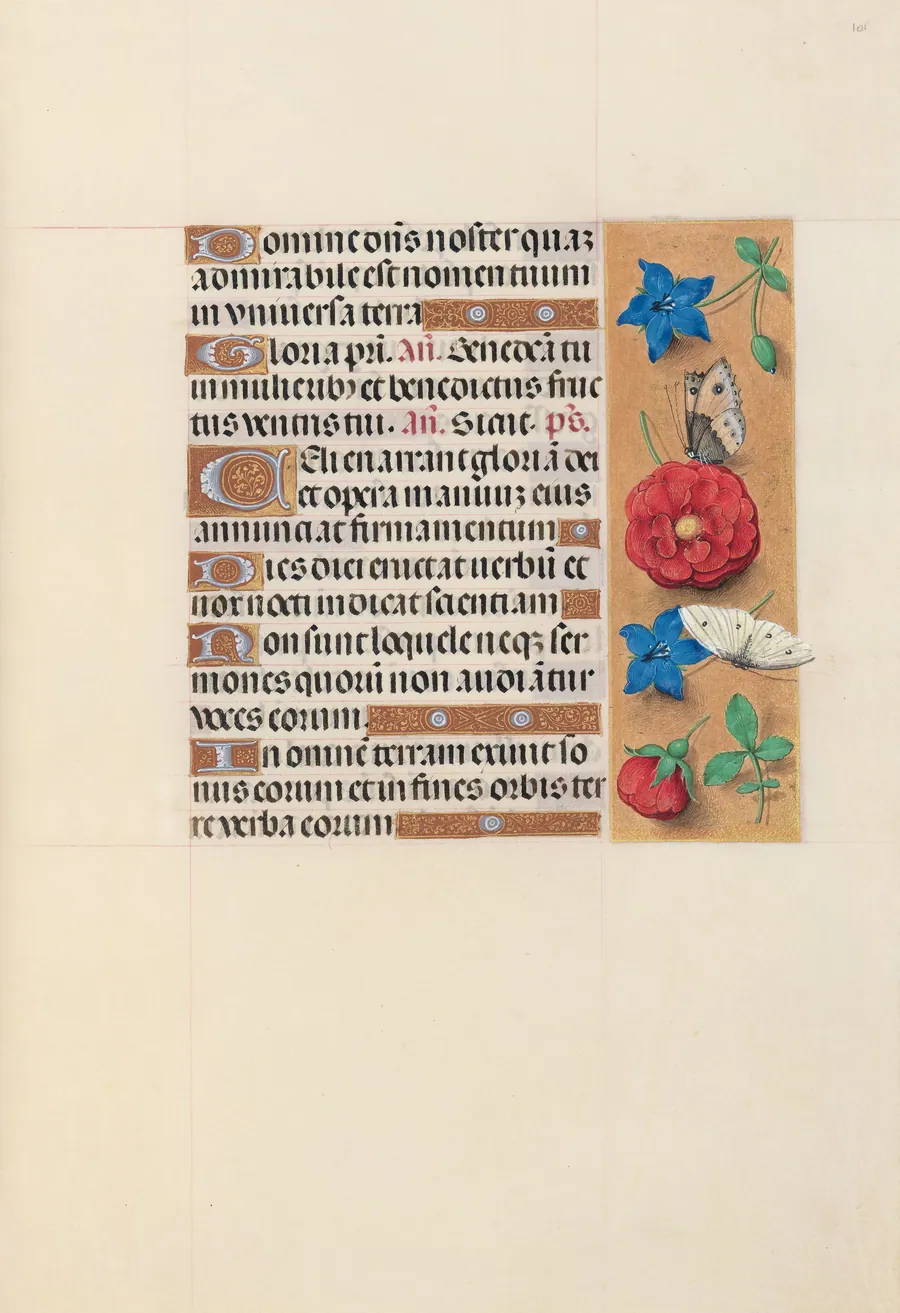 Domine dn̄s noster quaꝫ
admirabile est nomen tuum
in vniuersa terra
Gloria pr̄i. An̄. Benedc̄a tu
in mulieribꝫ et benedictus fruc
tus ventris tui. An̄. Sicut. ps̄.
Celi enarrant gloriā dei
et opera manuuꝫ eius
annunciat firmamentum
Dies diei eructat uerbū et
nox nocti indicat scientiam
Non sunt loquele neqꝫ ser
mones quorū non audiātur
voces eorum.
In omnē terram exiuit so
nus eorum et in fines orbis ter
re verba eorum